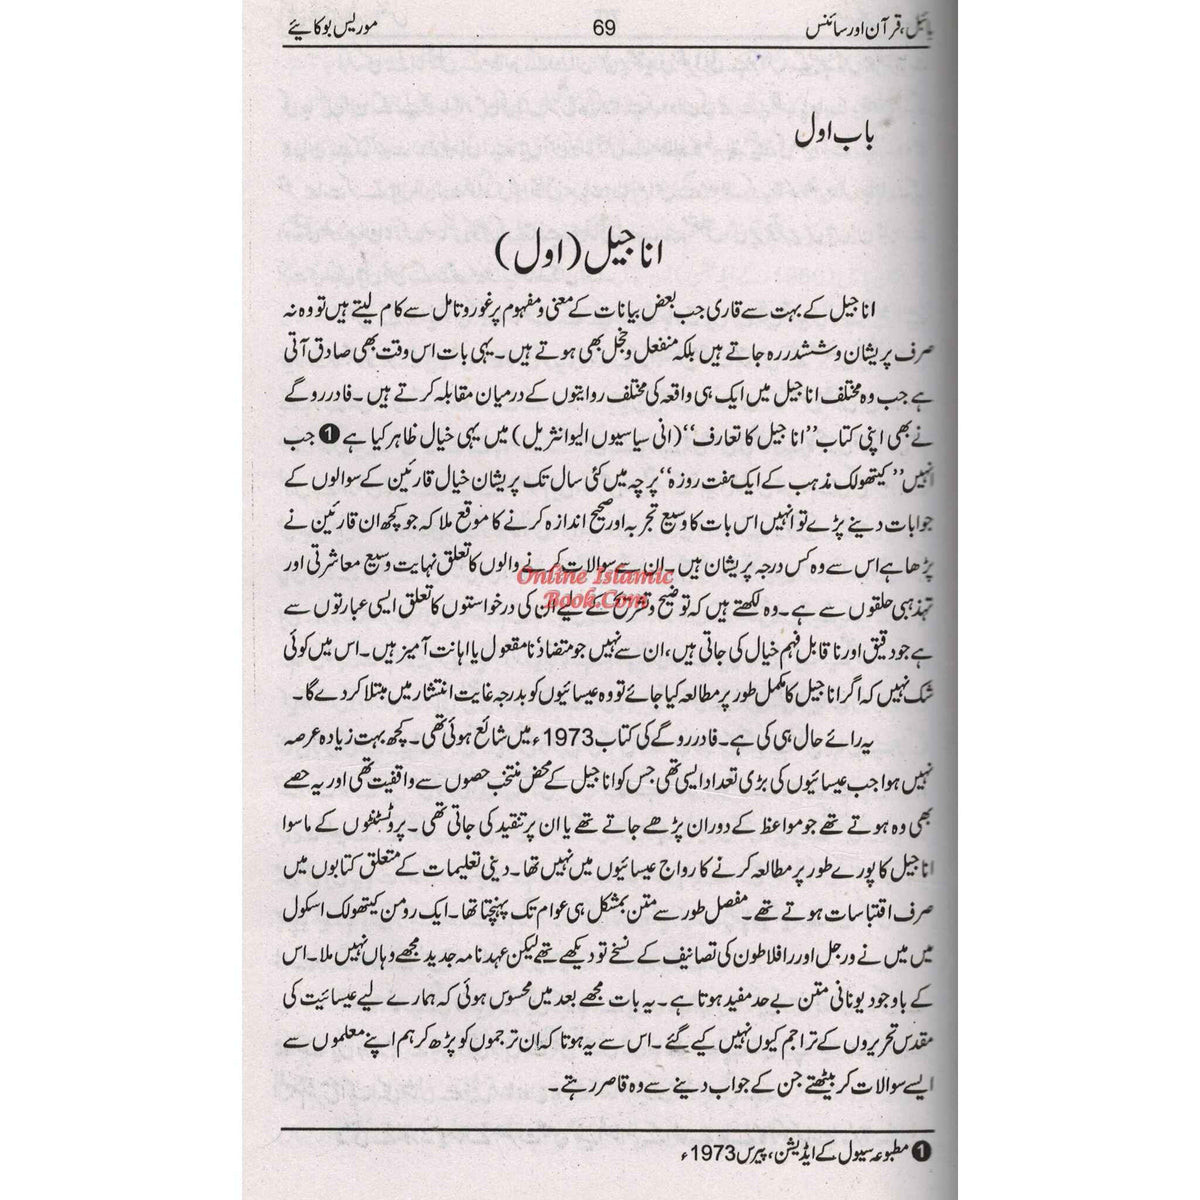 بائبل، قرآن اور سائنس 69 موریس بوکائیے
باب اول
اناجیل (اول)
اناجیل کے بہت سے قاری جب بعض بیانات کے معنی و مفہوم پر غور و تامل سے کام لیتے ہیں تو وہ نہ
صرف پریشان و ششدر رہ جاتے ہیں بلکہ منفعل و خجل بھی ہوتے ہیں۔ یہی بات اس وقت بھی صادق آتی
ہے جب وہ مختلف اناجیل میں ایک ہی واقعہ کی مختلف روایتوں کے درمیان مقابلہ کرتے ہیں۔ فادر روگے
نے بھی اپنی کتاب ”اناجیل کا تعارف“ (انی سیاسیوں الیوانثریل) میں یہی خیال ظاہر کیا ہے ❶ جب
انہیں ”کیتھولک مذہب کے ایک ہفت روزہ“ پرچہ میں کئی سال تک پریشان خیال قارئین کے سوالوں کے
جوابات دینے پڑے تو انہیں اس بات کا وسیع تجربہ اور صحیح اندازہ کرنے کا موقع ملا کہ جو کچھ ان قارئین نے
پڑھا ہے اس سے وہ کس درجہ پریشان ہیں۔ ان سے سوالات کرنے والوں کا تعلق نہایت وسیع معاشرتی اور
Online Islamic
Book.Com
تہذہبی حلقوں سے ہے۔ وہ لکھتے ہیں کہ توضیح و تشریح کے لیے ان کی درخواستوں کا تعلق ایسی عبارتوں سے
ہے جو دقیق اور ناقابل فہم خیال کی جاتی ہیں، ان سے نہیں جو متضاد نامعقول یا اہانت آمیز ہیں۔ اس میں کوئی
شک نہیں کہ اگر اناجیل کا مکمل طور پر مطالعہ کیا جائے تو وہ عیسائیوں کو بدرجہ غایت انتشار میں مبتلا کر دے گا۔
یہ رائے حال ہی کی ہے۔ فادر روگے کی کتاب 1973ء میں شائع ہوئی تھی۔ کچھ بہت زیادہ عرصہ
نہیں ہوا جب عیسائیوں کی بڑی تعداد ایسی تھی جس کو اناجیل کے محض منتخب حصوں سے واقفیت تھی اور یہ حصے
بھی وہ ہوتے تھے جو مواعظ کے دوران پڑھے جاتے تھے یا ان پر تنقید کی جاتی تھی۔ پروٹسٹنٹوں کے ماسوا
اناجیل کا پورے طور پر مطالعہ کرنے کا رواج عیسائیوں میں نہیں تھا۔ دینی تعلیمات کے متعلق کتابوں میں
صرف اقتباسات ہوتے تھے۔ مفصل طور سے متن بمشکل ہی عوام تک پہنچتا تھا۔ ایک رومن کیتھولک اسکول
میں میں نے ورجل اور رافلاطون کی تصانیف کے نسخے تو دیکھے تھے لیکن عہد نامہ جدید مجھے وہاں نہیں ملا۔ اس
کے باوجود یونانی متن بے حد مفید ہوتا ہے۔ یہ بات مجھے بعد میں محسوس ہوئی کہ ہمارے لیے عیسائیت کی
مقدس تحریروں کے تراجم کیوں نہیں کیے گئے۔ اس سے یہ ہوتا کہ ان ترجموں کو پڑھ کر ہم اپنے معلموں سے
ایسے سوالات کر بیٹھتے جن کے جواب دینے سے وہ قاصر رہتے۔
❶ مطبوعہ سیول کے ایڈیشن، پیرس 1973ء